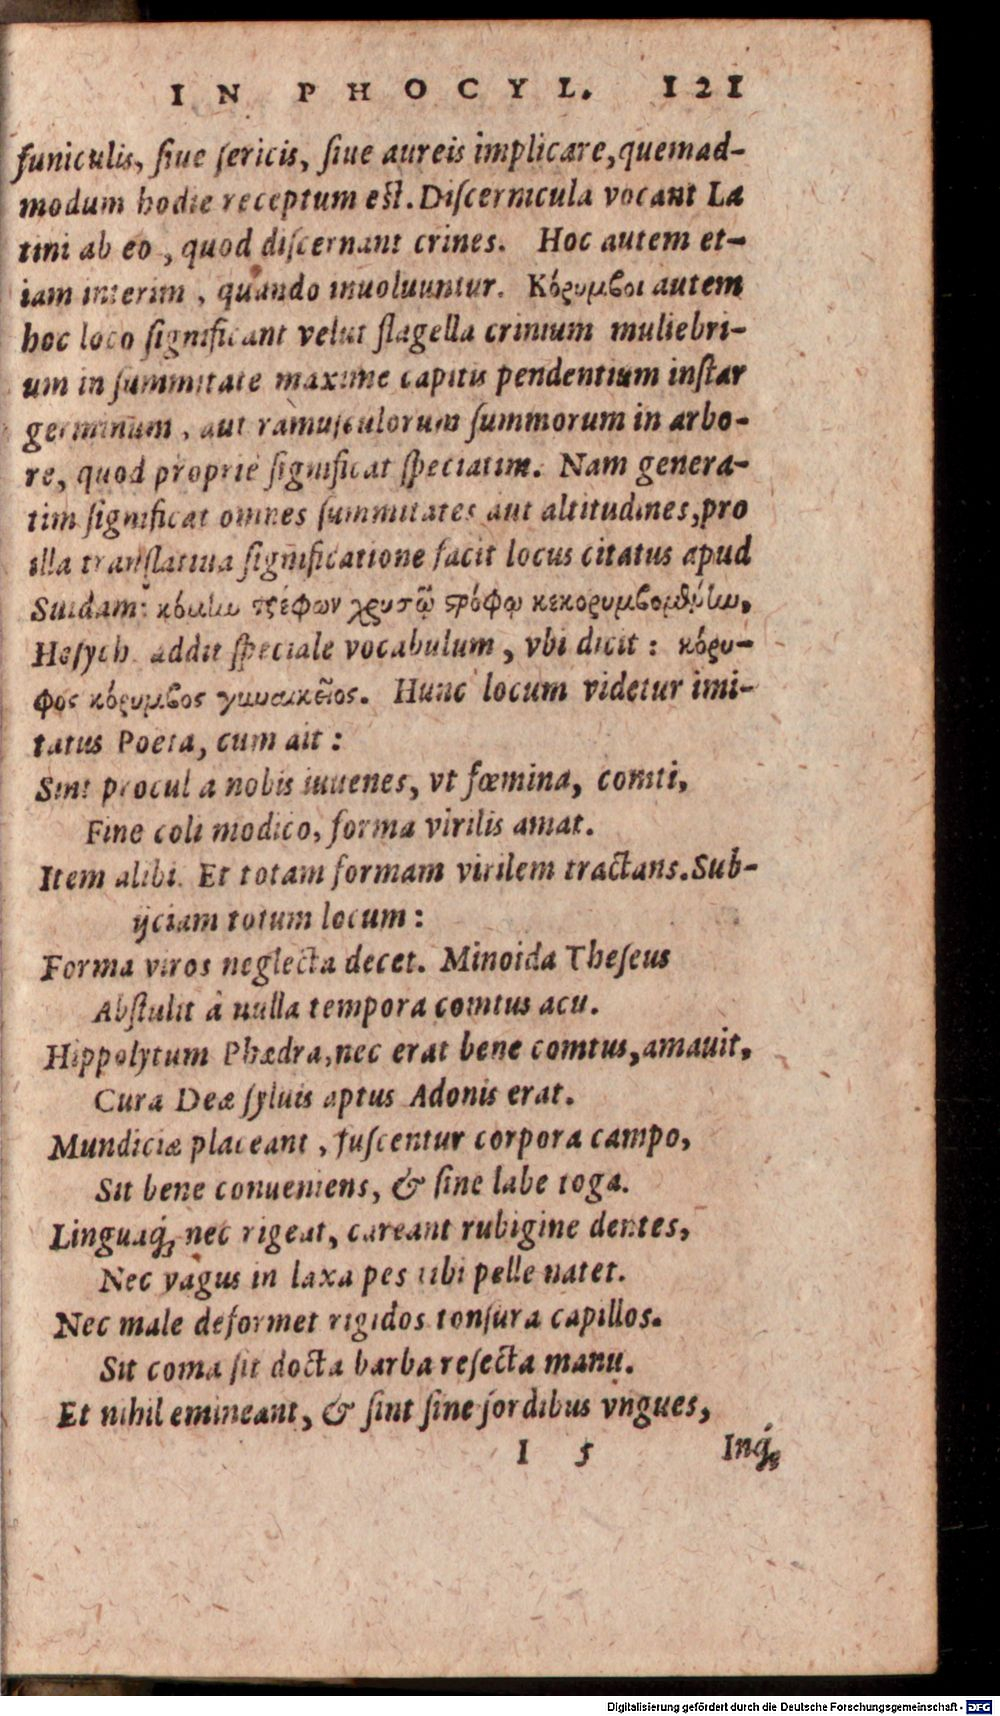 IN PHOCYL. 121
funiculis, ſiue ſericis, ſiue aureis implicare, quemad-
modum hodie receptum eſt. Diſcernicula vocant La
tini ab eo, quod diſcernant crines. Hoc autem et-
iam interim, quando inuoluuntur. Κόρυμβοι autem
hoc loco ſignificant velut flagella crinium muliebri-
um in ſummitate maxime capitis pendentium inſtar
germinum, aut ramuſculorum ſummorum in arbo-
re, quod proprie ſignificat ſpeciatim. Nam genera-
tim ſignificat omnes ſummitates aut altitudines, pro
illa tranſlatiua ſignificatione facit locus citatus apud
Suidam: κόμην τρέφων χρυσῷ στρόφῳ κεκορυμβομθύην,
Heſych. addit ſpeciale vocabulum, vbi dicit: κόρυ-
φος κόρυμβος γυναικεῖος. Hunc locum videtur imi-
tatus Poeta, cum ait:
Sint procul a nobis iuuenes, vt fœmina, comti,
Fine coli modico, forma virilis amat.
Item alibi. Et totam formam virilem tractans. Sub-
ijciam totum locum:
Forma viros neglecta decet. Minoida Theſeus
Abſtulit à nulla tempora comtus acu.
Hippolytum Phædra, nec erat bene comtus, amauit,
Cura Deæ ſyluis aptus Adonis erat.
Mundiciæ placeant, fuſcentur corpora campo,
Sit bene conueniens, & ſine labe toga.
Linguaq́; nec rigeat, careant rubigine dentes,
Nec vagus in laxa pes tibi pelle natet.
Nec male deformet rigidos tonſura capillos.
Sit coma ſit docta barba reſecta manu.
Et nihil emineant, & ſint ſine ſordibus vngues,
I 5 Inq́;
Digitalisierung gefördert durch die Deutsche Forschungsgemeinschaft - DFG